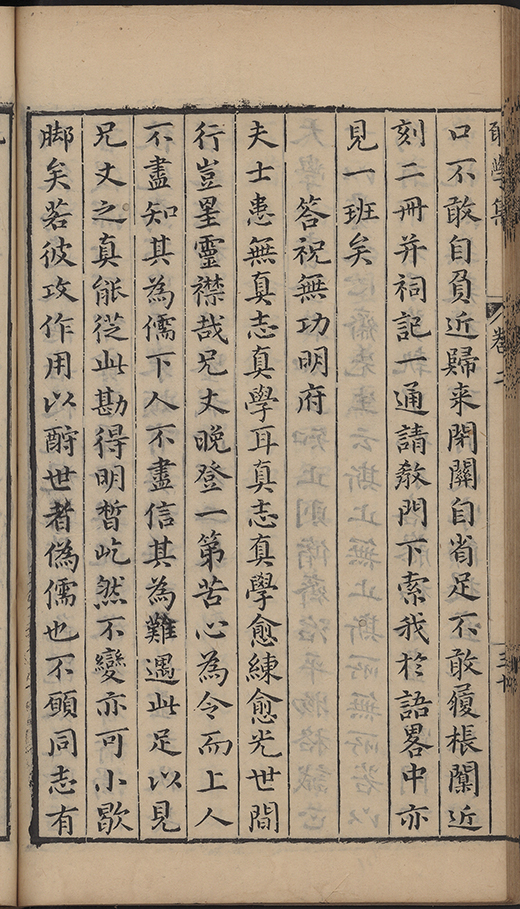 學集 卷二
口不敢自負近歸来閉關自省足不敢履棖闑近
刻二冊并祠記一通請教門下索我於語畧中亦
見一班矣
答祝無功明府
夫士患無真志真學耳真志真學愈練愈光世間
行豈星靈襟哉兄丈晚登一第苦心為令而上人
不盡知其為儒下人不盡信其為難遇此足以見
兄丈之真能從此勘得明晳屹然不變亦可小歇
脚矣若彼攻作用以酧世者偽儒也不願同志有